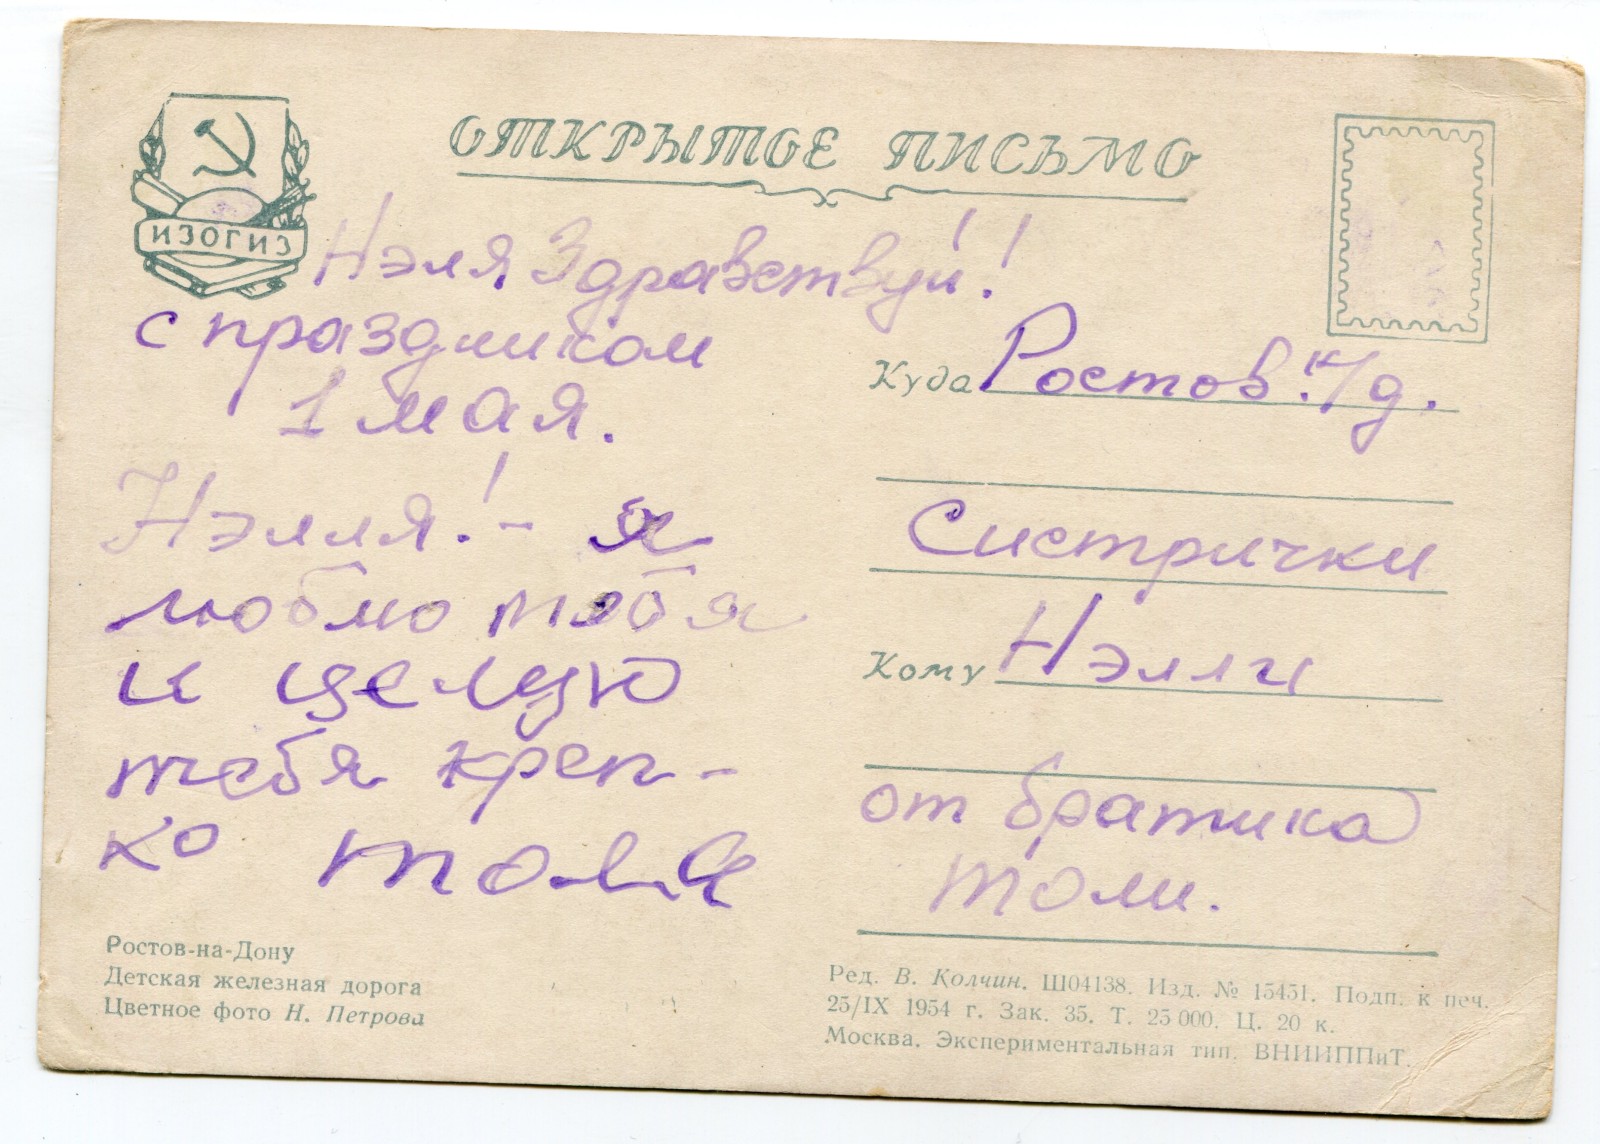 ОТКРЫТОЕ ПИСЬМО
ИЗОГИЗ
Нэля Здравствуй!
с праздником
1 мая.
Нэлля! - я
люблю тебя
и целую
тебя креп-
ко Толя
Куда Ростов н/д.
Систрички
Кому Нэлли
от братика
Толи.
Ростов-на-Дону
Детская железная дорога
Цветное фото Н. Петрова
Ред. В. Колчин. Ш04138. Изд. № 15451. Подп. к печ.
25/IX 1954 г. Зак. 35. Т. 25 000. Ц. 20 к.
Москва. Экспериментальная тип. ВНИИППиТ.